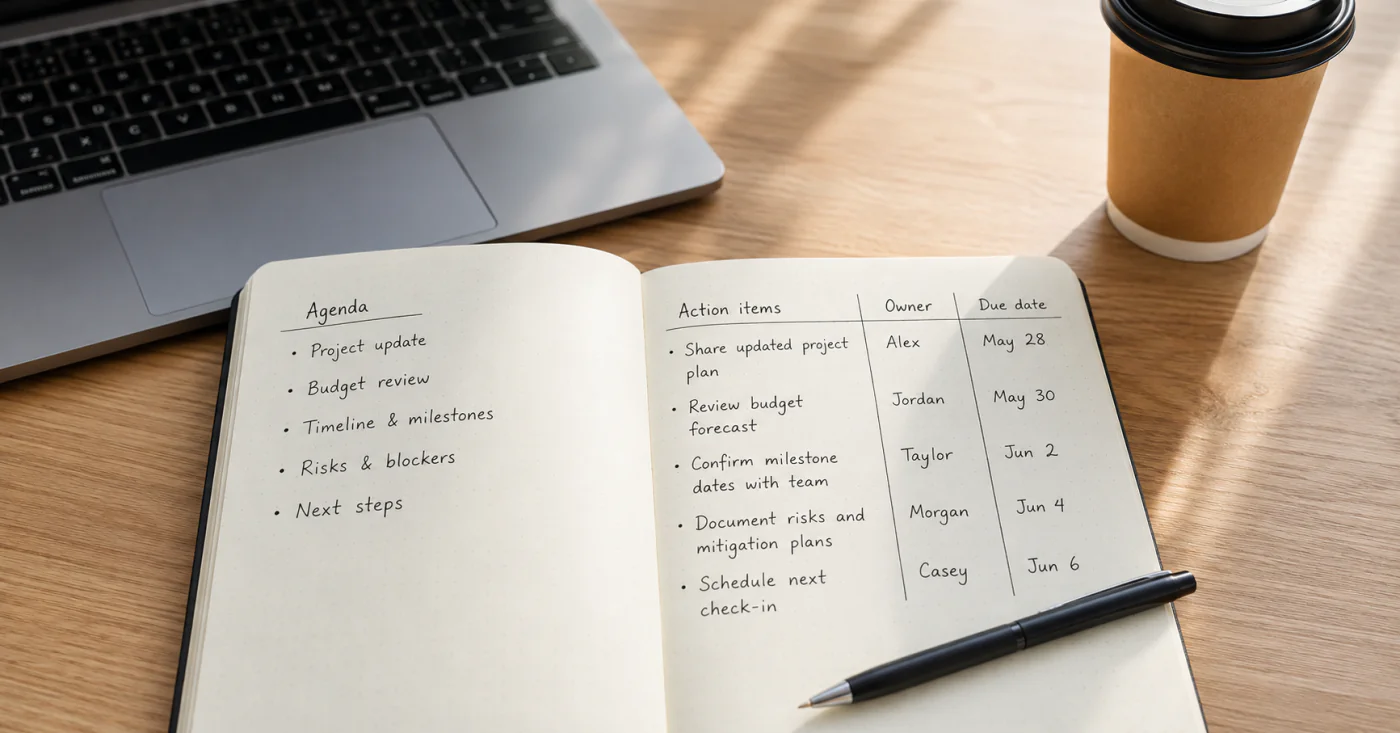 Agenda
• Project update
• Budget review
• Timeline & milestones
• Risks & blockers
• Next steps
Action items Owner Due date
• Share updated project Alex May 28
plan
• Review budget Jordan May 30
forecast
• Confirm milestone Taylor Jun 2
dates with team
• Document risks and Morgan Jun 4
mitigation plans
• Schedule next Casey Jun 6
check-in